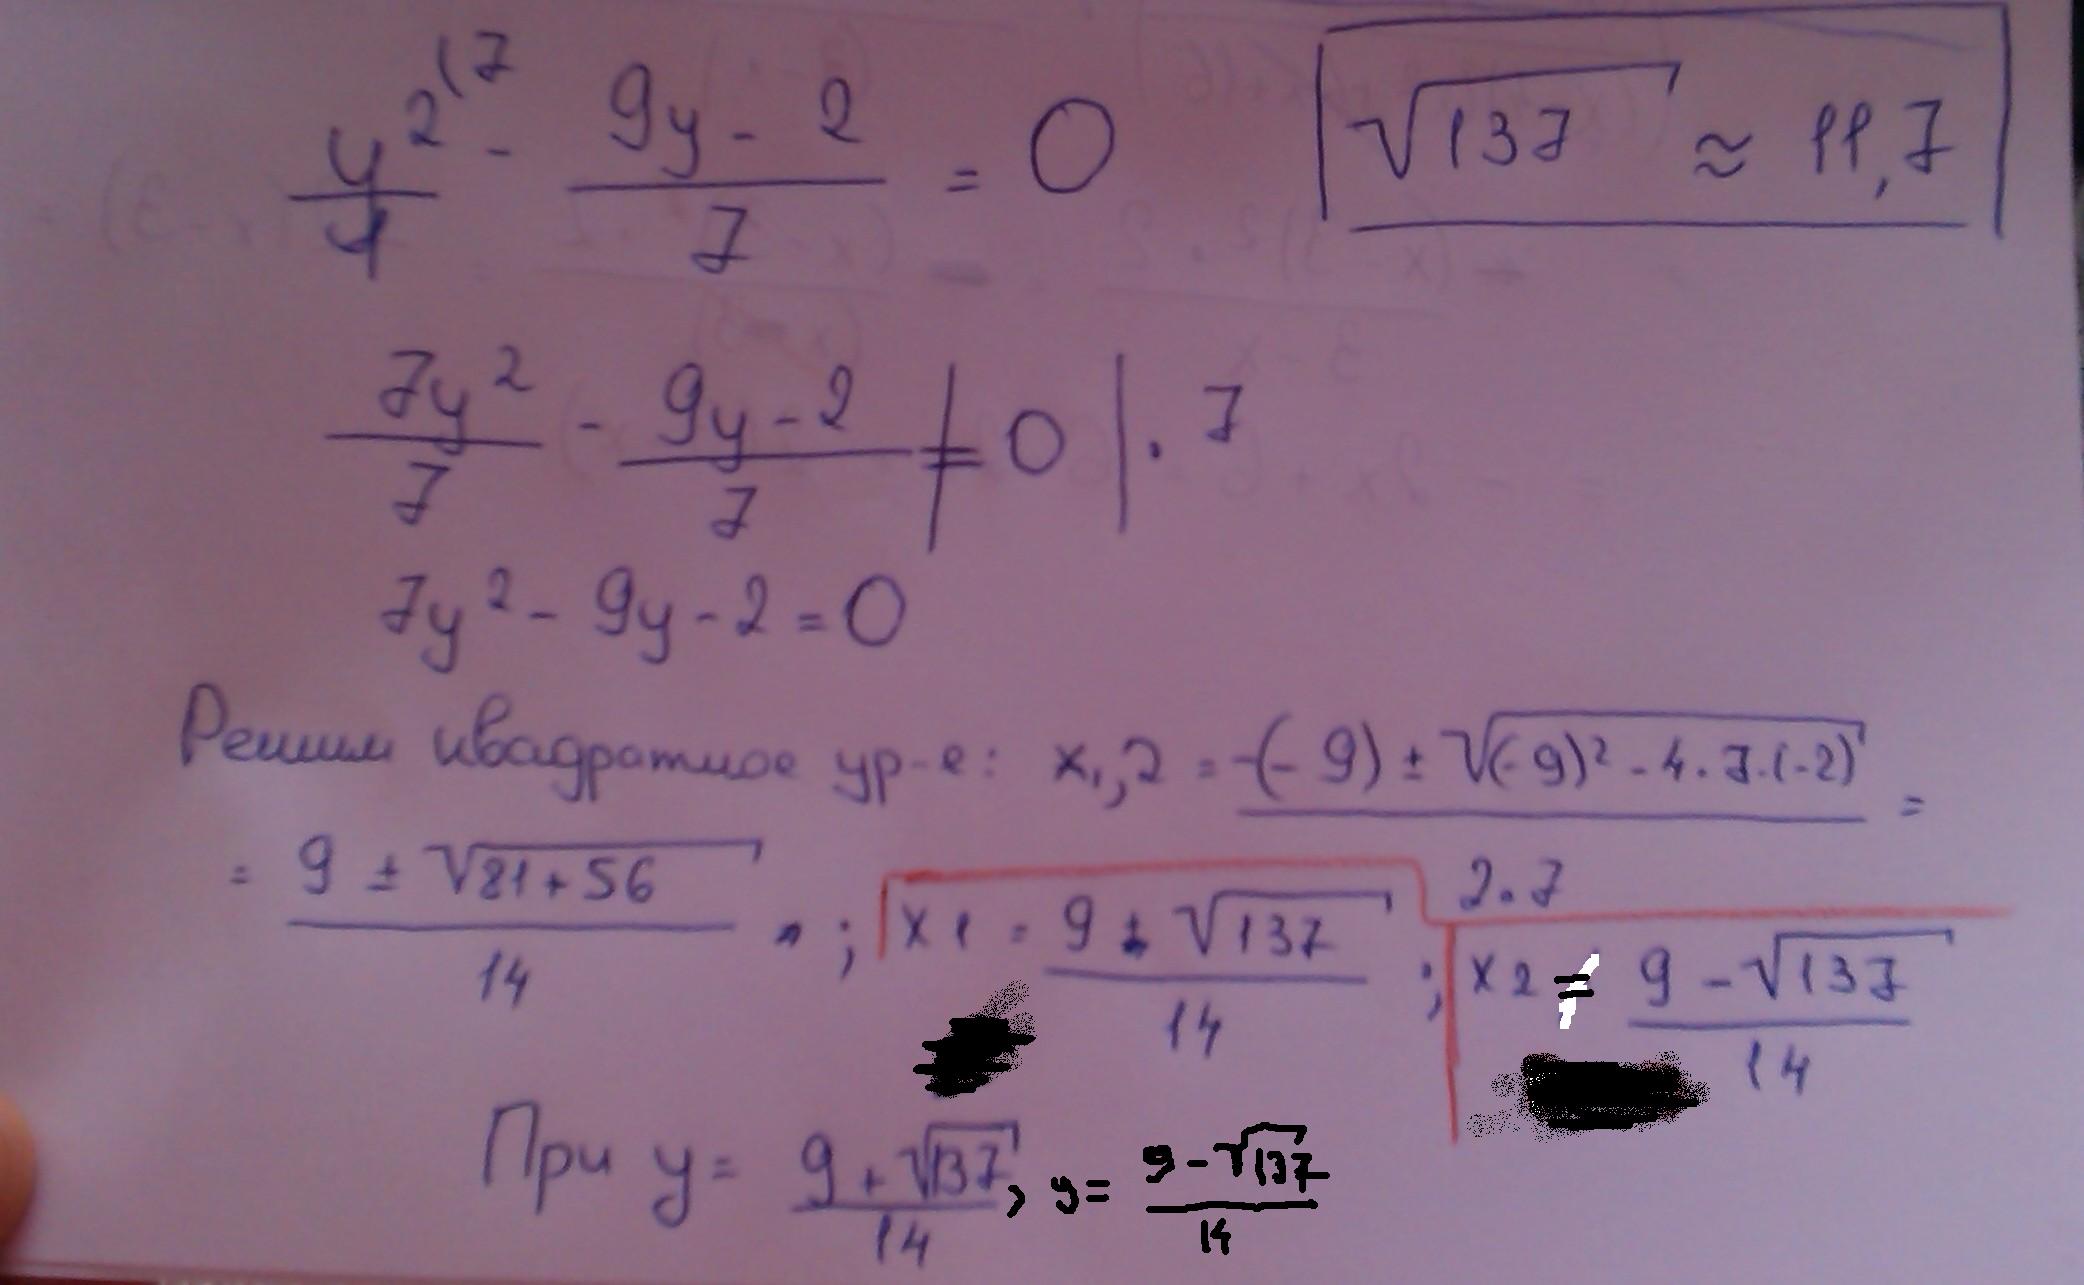 y²⁽⁷/4 - (9y - 2)/7 = 0   √137 ≈ 11,7
7y²/7 - (9y - 2)/7 = 0 | · 7
7y² - 9y - 2 = 0
Решим квадратное ур-е: x₁,2 = (-(-9) ± √((-9)² - 4 · 7 · (-2)))/(2 · 7) =
= (9 ± √(81 + 56))/14 ; x1 = (9 ± √137)/14 ; x2 = (9 - √137)/14
При y = (9 + √137)/14, y = (9 - √137)/14